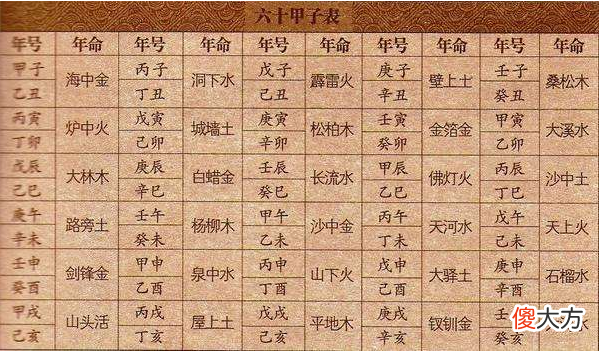 六十甲子表
年号 年命 年号 年命 年号 年命 年号 年命 年号 年命
甲子 海中金 丙子 洞下水 戊子 霹雷火 庚子 壁上土 壬子 桑松木
乙丑 丁丑 己丑 辛丑 癸丑
丙寅 炉中火 戊寅 城墙土 庚寅 松柏木 壬寅 金箔金 甲寅 大溪水
丁卯 己卯 辛卯 癸卯 乙卯
戊辰 大林木 庚辰 白蜡金 壬辰 长流水 甲辰 佛灯火 丙辰 沙中土
己巳 辛巳 癸巳 乙巳 丁巳
庚午 路旁土 壬午 杨柳木 甲午 沙中金 丙午 天河水 戊午 天上火
辛未 癸未 乙未 丁未 己未
壬申 剑锋金 甲申 泉中水 丙申 山下火 戊申 大驿土 庚申 石榴水
癸酉 乙酉 丁酉 己酉 辛酉
甲戌 山头活 丙戌 屋上土 戊戌 平地木 庚戌 钗钏金 壬 水
乙亥 丁亥 己亥 辛亥
傻大方